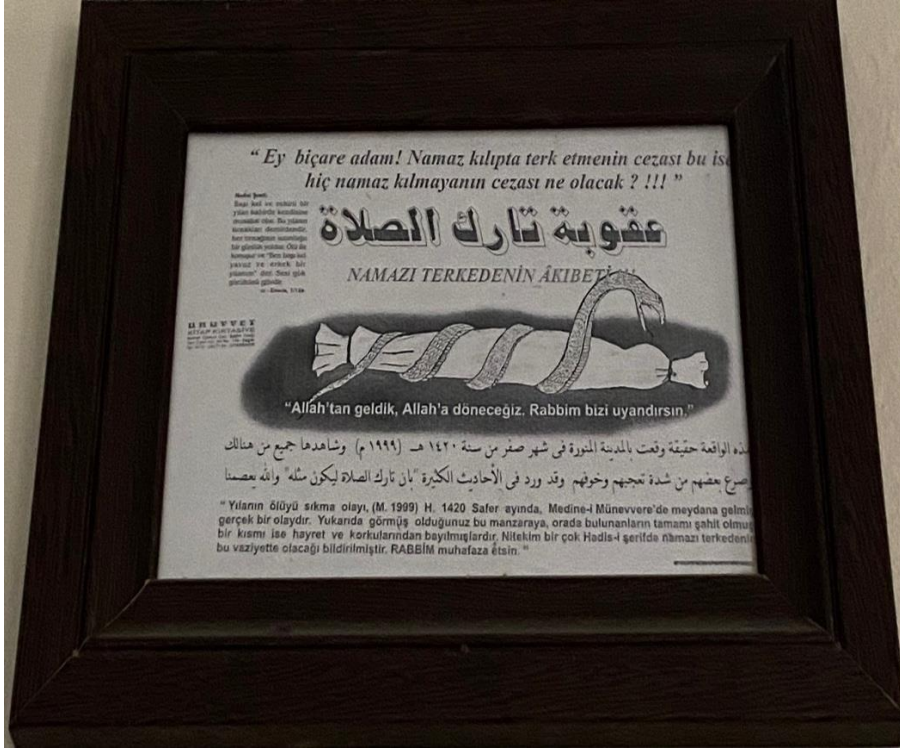 “ Ey biçare adam! Namaz kılıpta terk etmenin cezası bu ise
hiç namaz kılmayanın cezası ne olacak ? !!! ”
عقوبة تارك الصلاة
NAMAZI TERKEDENİN ÂKIBETİ
“Allah’tan geldik, Allah’a döneceğiz. Rabbim bizi uyandırsın.”
الواقعة حقيقة وقعت بالمدينة المنورة فى شهر صفر من سنة ١٤٢٠ هـ (١٩٩٩ م) وشاهدها جميع من هنالك
صرع بعضهم من شدة تعجبهم وخوفهم وقد ورد فى الأحاديث الكثيرة "بان تارك الصلاة ليكون مثله" والله يعصمنا
“ Yılanın ölüyü sıkma olayı, (M. 1999) H. 1420 Safer ayında, Medine-i Münevvere’de meydana gelmi
gerçek bir olaydır. Yukarıda görmüş olduğunuz bu manzaraya, orada bulunanların tamamı şahit olmuş
bir kısmı ise hayret ve korkularından bayılmışlardır. Nitekim bir çok Hadis-i şerifde namazı terkedenin
bu vaziyette olacağı bildirilmiştir. RABBİM muhafaza etsin. ”